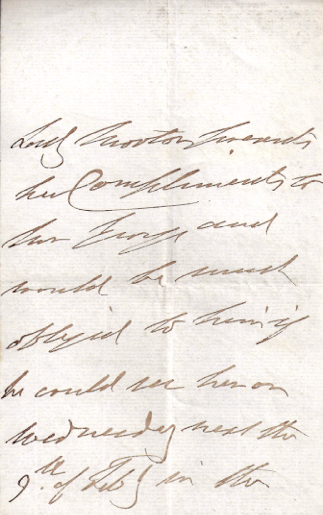 Lady Morton presents
her Compliments to
and
would be much
obliged to him if
he could see her on
Wednesday next the
9th of Feby in the